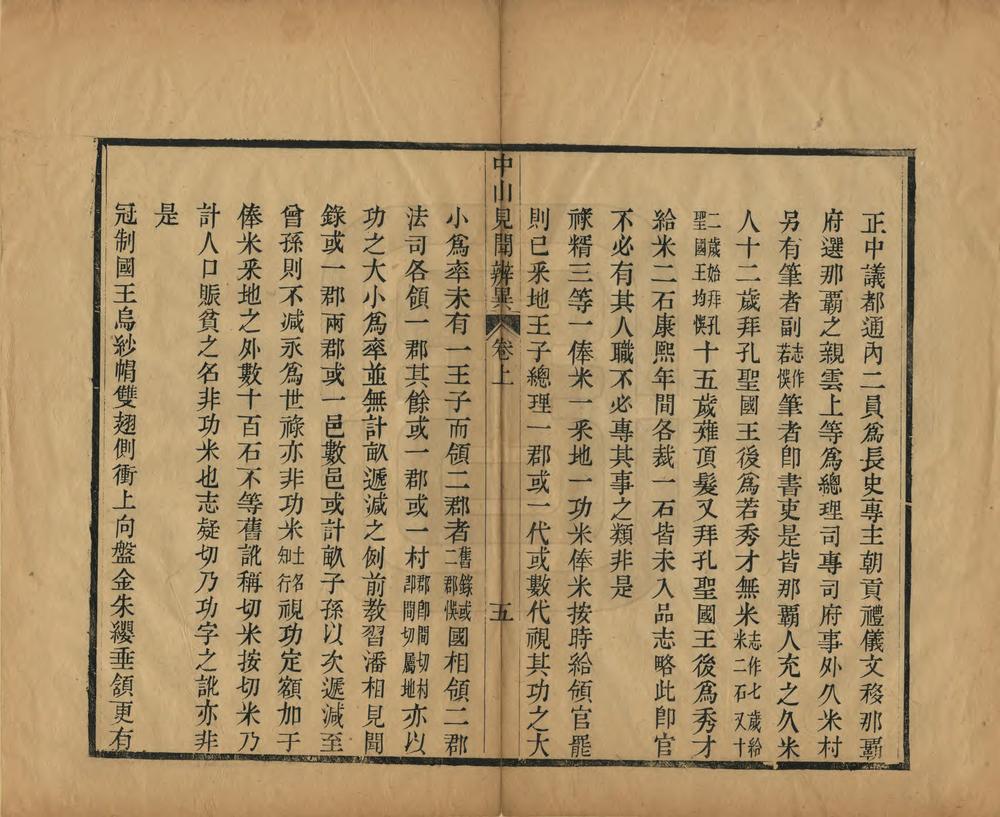 正中議都通內二員爲長史專主朝貢禮儀文移那霸
府選那霸之親雲上等爲總理司專司府事外久米村
另有筆者副志作若悞筆者卽書吏是皆那霸人充之久米
人十二歲拜孔聖國王後爲若秀才無米志作七歲給米二石又十
二歲始拜孔聖國王均悞十五歲薙頂髮又拜孔聖國王後爲秀才
給米二石康熙年間各裁一石皆未入品志略此卽官
不必有其人職不必專其事之類非是
祿糈三等一俸米一釆地一功米俸米按時給領官罷
則已釆地王子總理一郡或一代或數代視其功之大
中山見聞辨異 卷上 五
小爲率未有一王子而領二郡者舊錄或二郡悞國相領二郡
法司各領一郡其餘或一郡或一村郡卽間切村卽間切屬地亦以
功之大小爲率並無計畝遞減之例前教習潘相見聞
錄或一郡兩郡或一邑數邑或計畝子孫以次遞減至
曾孫則不減永爲世祿亦非功米土名知行視功定額加于
俸米釆地之外數十百石不等舊訛稱切米按切米乃
計人口賑貧之名非功米也志疑切乃功字之訛亦非
是
冠制國王烏紗帽雙翅側衝上向盤金朱纓垂頷更有